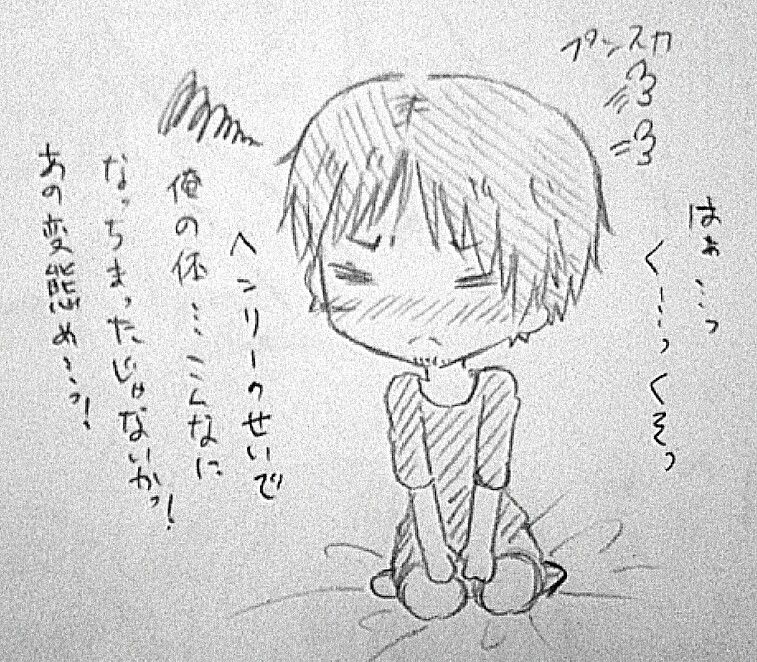 プンスカ
はぁ…っ
くー…っくそっ
ヘンリーのせいで
俺の体…こんなに
なっちまったじゃないかっ!
あの変態め…っ!